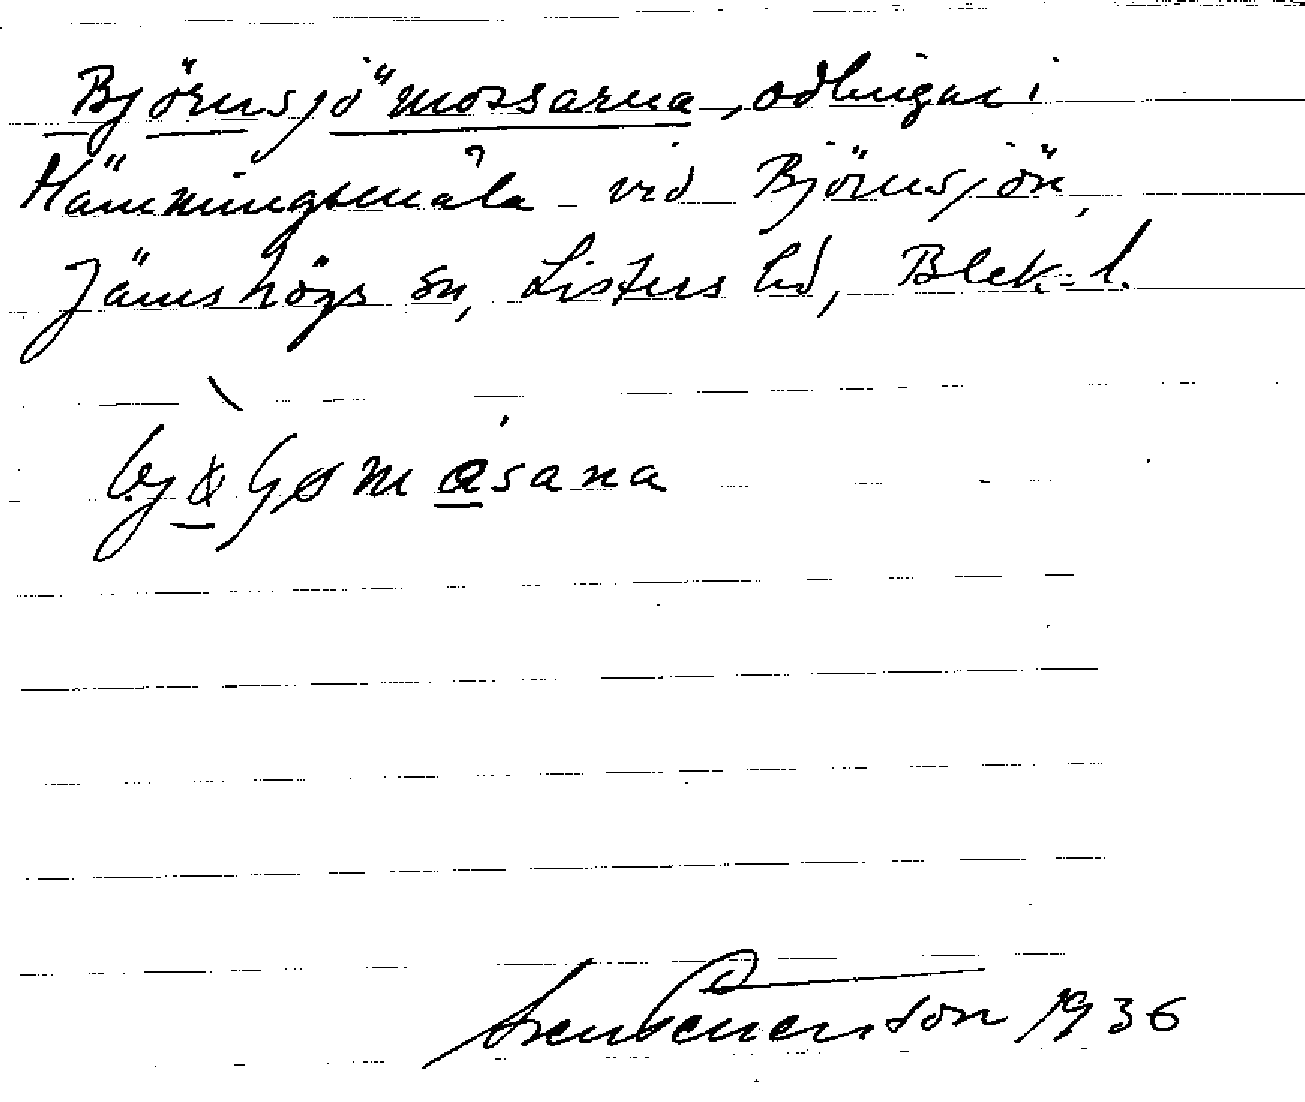 Björnsjömossarna, odlingar i
Hämmingsmåla vid Björnsjön,
Jämshögs sn, Listers hd, Blek. l.
Sven Benson 1936